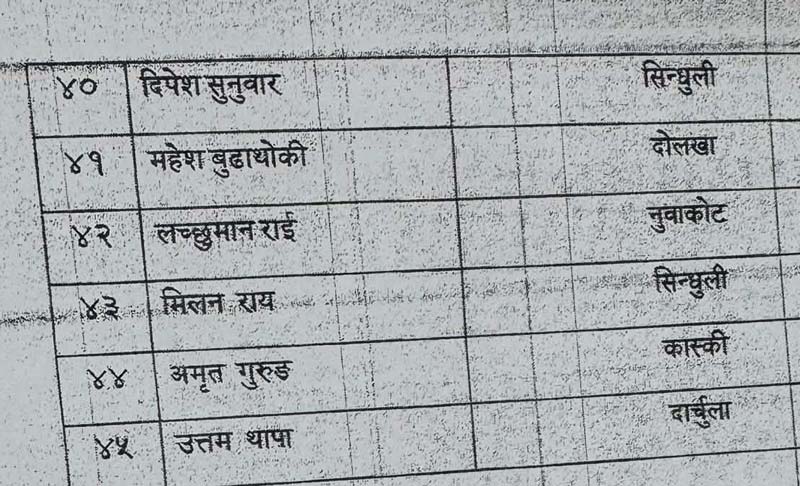 ४० दिपेश सुनुवार सिन्धुली
४१ महेश बुढाथोकी दोलखा
४२ लच्छुमान राई नुवाकोट
४३ मिलन राय सिन्धुली
४४ अमृत गुरुङ कास्की
४५ उत्तम थापा दार्चुला